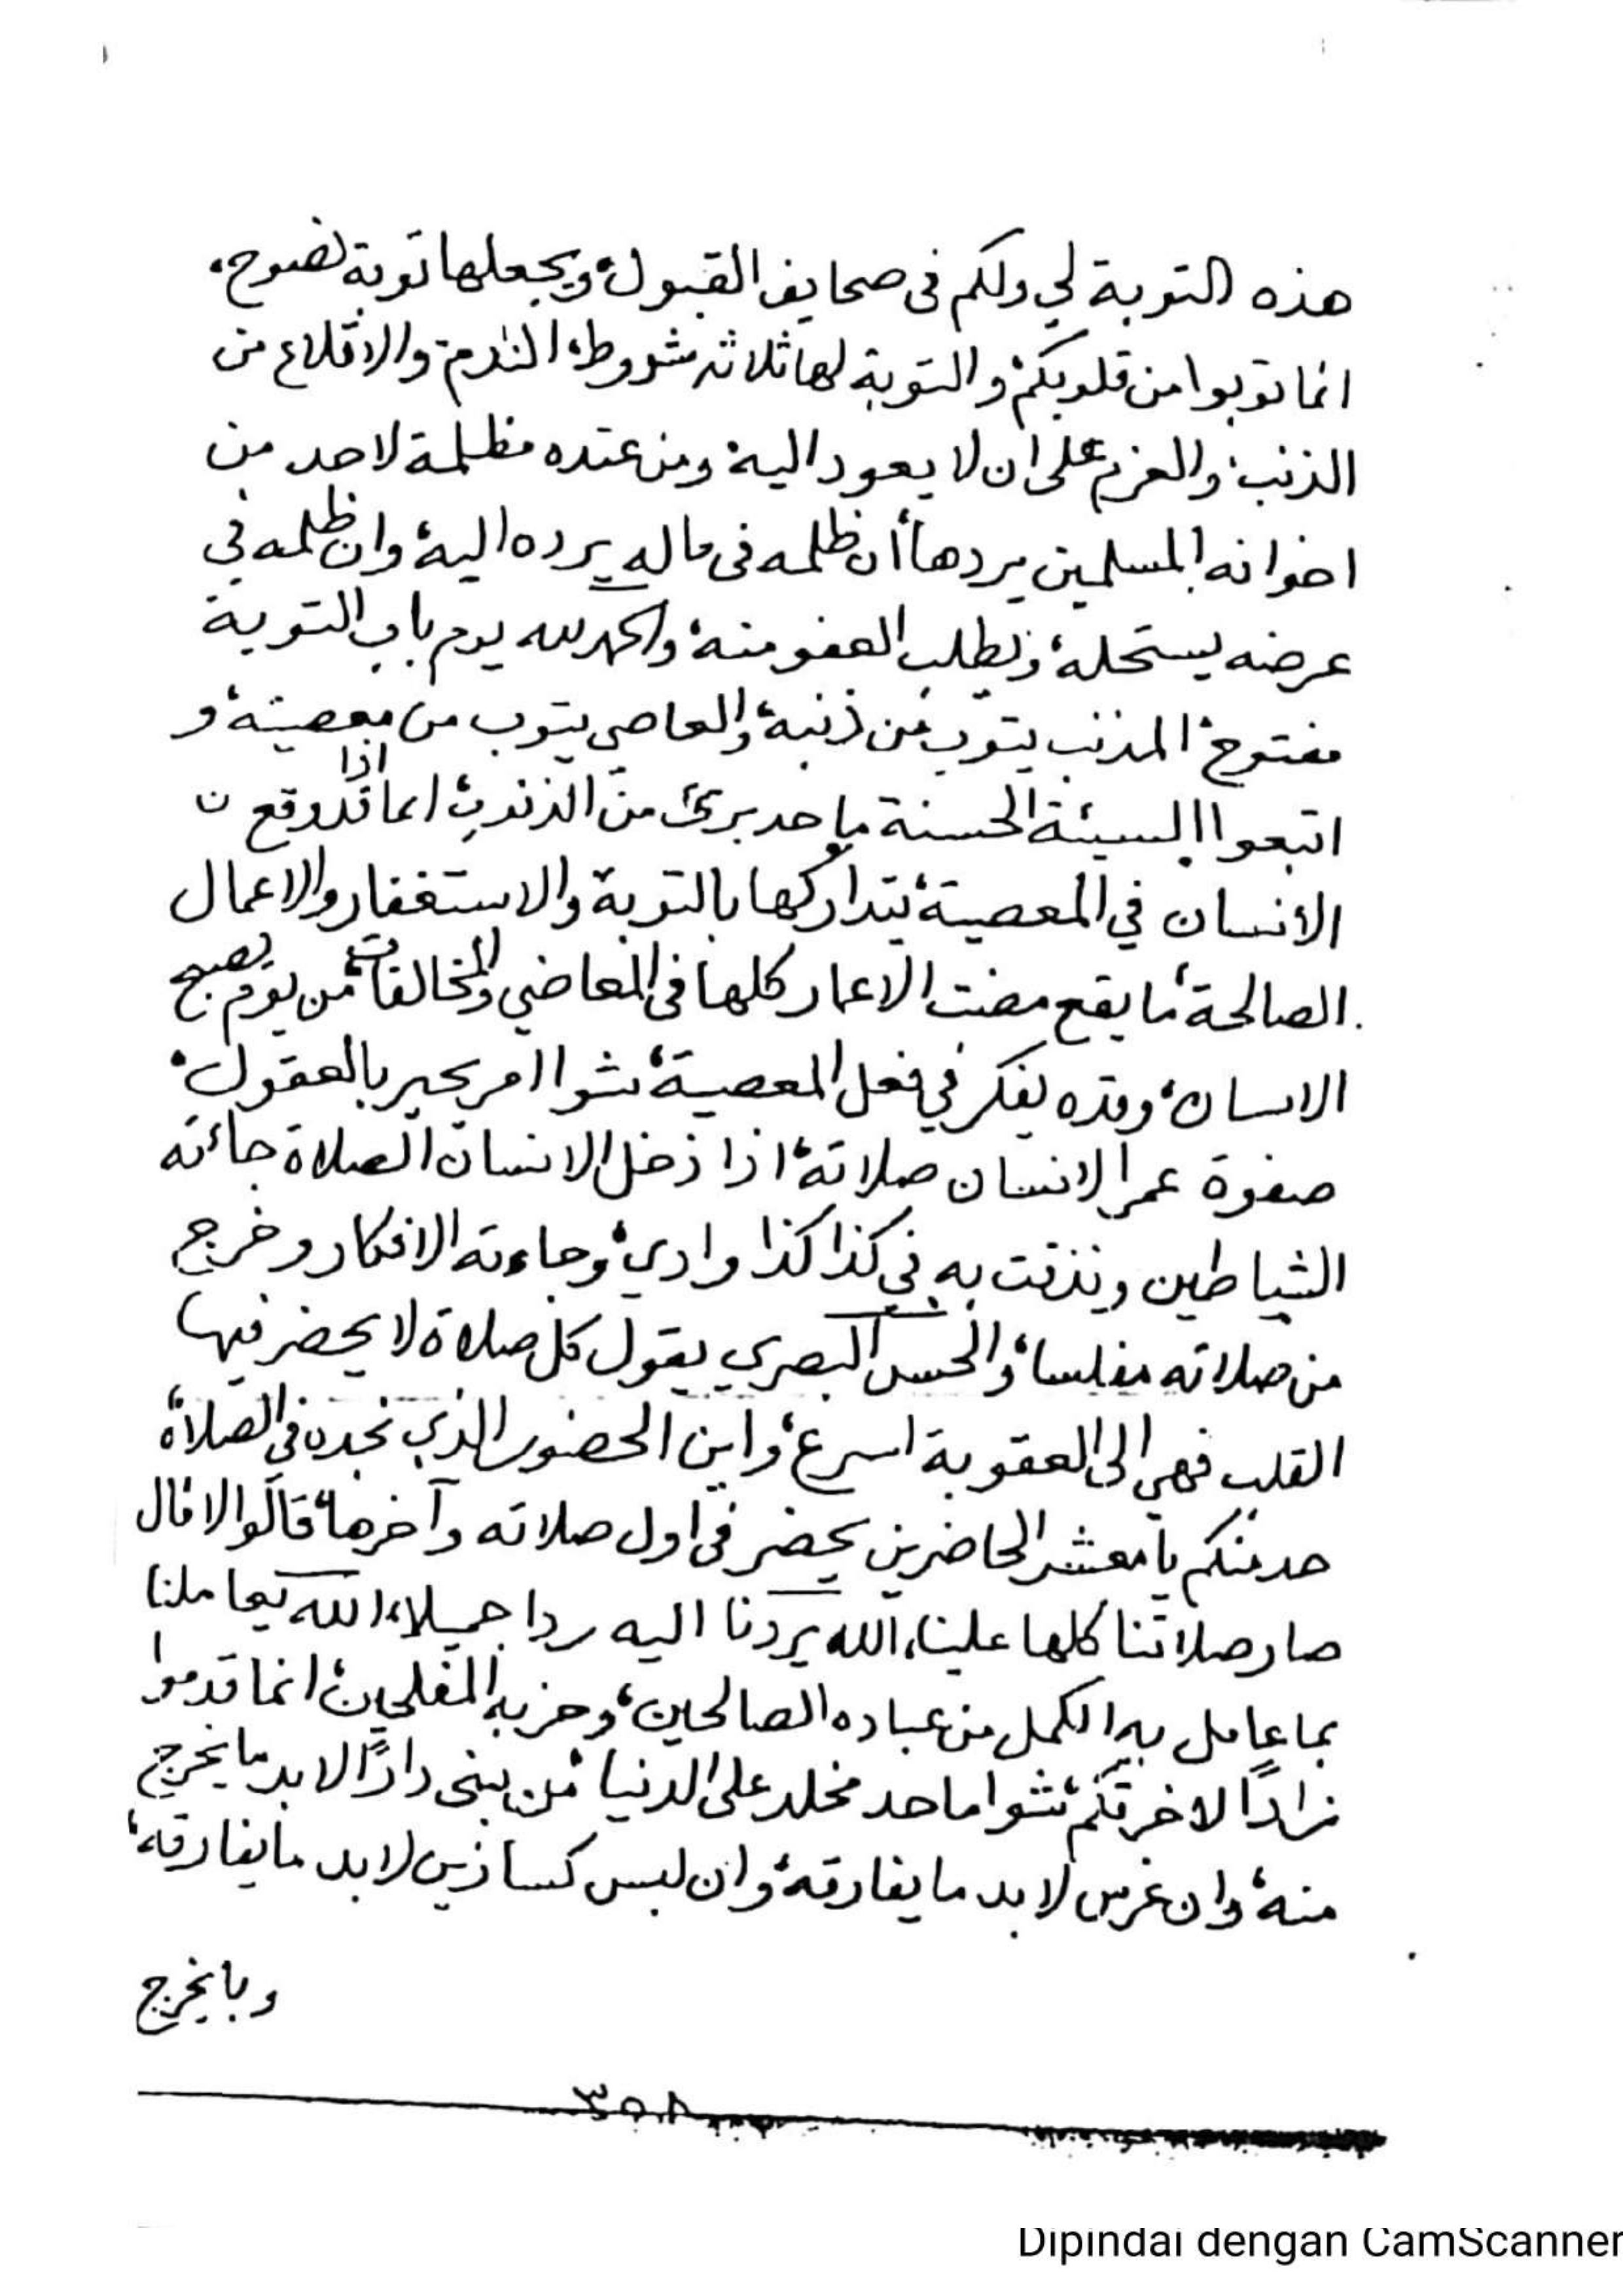 هذه التوبة لي ولكم في صحايف القبول، ويجعلها توبة نصوح،
انما توبوا من قلوبكم، والتوبة لها ثلاثة شروط، الندم، والاقلاع من
الذنب، والعزم على ان لا يعود اليه، ومن عنده مظلمة لاحد من
اخوانه المسلمين يردها، أن ظلمه في ماله يرده اليه، وان ظلمه في
عرضه يستحله، ويطلب العفو منه، والحمد لله يوم باب التوبة
مفتوح، المذنب يتوب من ذنبه، والعاصي يتوب من معصيته، و
اتبعوا السيئة الحسنة ما حد بريئ من الذنوب، اما اذا قد وقع
الانسان في المعصية، يتداركها بالتوبة والاستغفار والاعمال
الصالحة، ما يقع مضت الاعمار كلها في المعاصي والمخالفات، من يوم يصبح
الانسان، وقده يفكر في فعل المعصية، شوا امر يحير بالعقول،
صفوة عمر الانسان صلاته، اذا دخل الانسان الصلاة جائته
الشياطين ونذقت به في كذا كذا وادي، وجاءته الافكار وخرج
من صلاته مفلسا، والحسن البصري يقول كل صلاة لا يحضر فيها
القلب فهي الى العقوبة اسرع، واين الحضور الذي نجده في الصلاة،
حد منكم يا معشر الحاضرين يحضر في اول صلاته وآخرها، قالوا لا قال
صار صلاتنا كلها علينا، الله يردنا اليه ردا جميلا، الله يعاملنا
بما عامل به الكمل من عباده الصالحين، وحزبه المفلحين، انما قدموا
زادًا لاخرتكم، شوا ما حد مخلد على الدنيا، من بنى دارًا لابد ما يخرج
منه، وان غرس لابد ما يفارقه، وان لبس كسا زين لابد ما يفارقه،
وبايخرج
٣٥٨
Dipindai dengan CamScanner